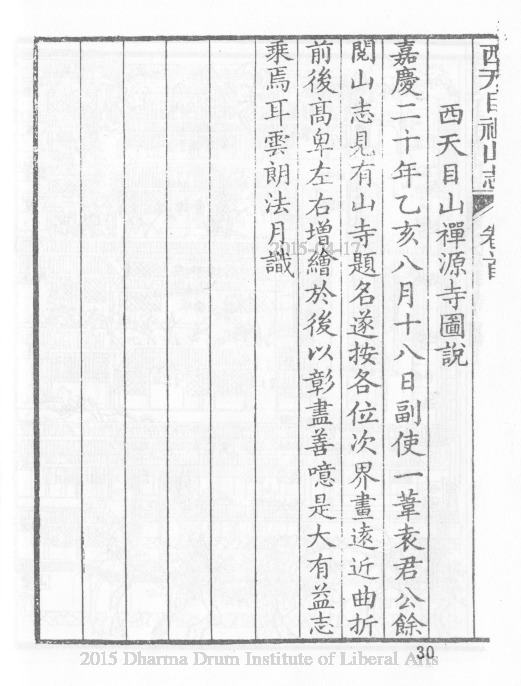 西天目祖山志 卷首
西天目山禪源寺圖說
嘉慶二十年乙亥八月十八日副使一葦袁君公餘
閱山志見有山寺題名遂按各位次界畫遠近曲折
前後高卑左右增繪於後以彰盡善噫是大有益志
乘焉耳雲朗法月識
2015-04-17
30
2015 Dharma Drum Institute of Liberal Arts